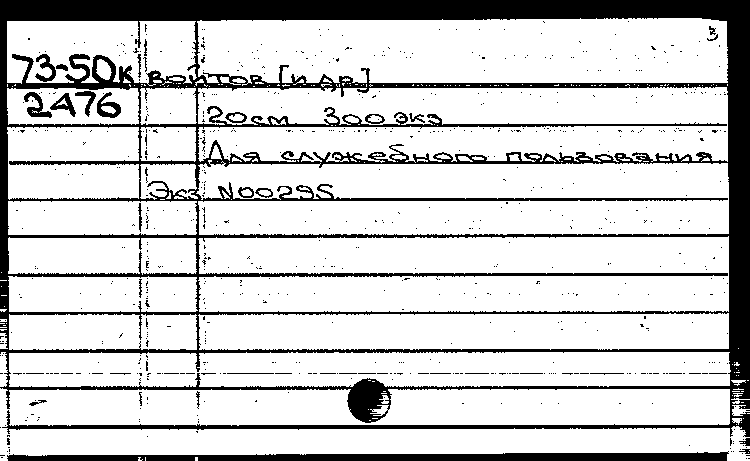 3
73-50к войтов [и др.]
2476
20 см. 300 экз
Для служебного пользования
Экз N00295